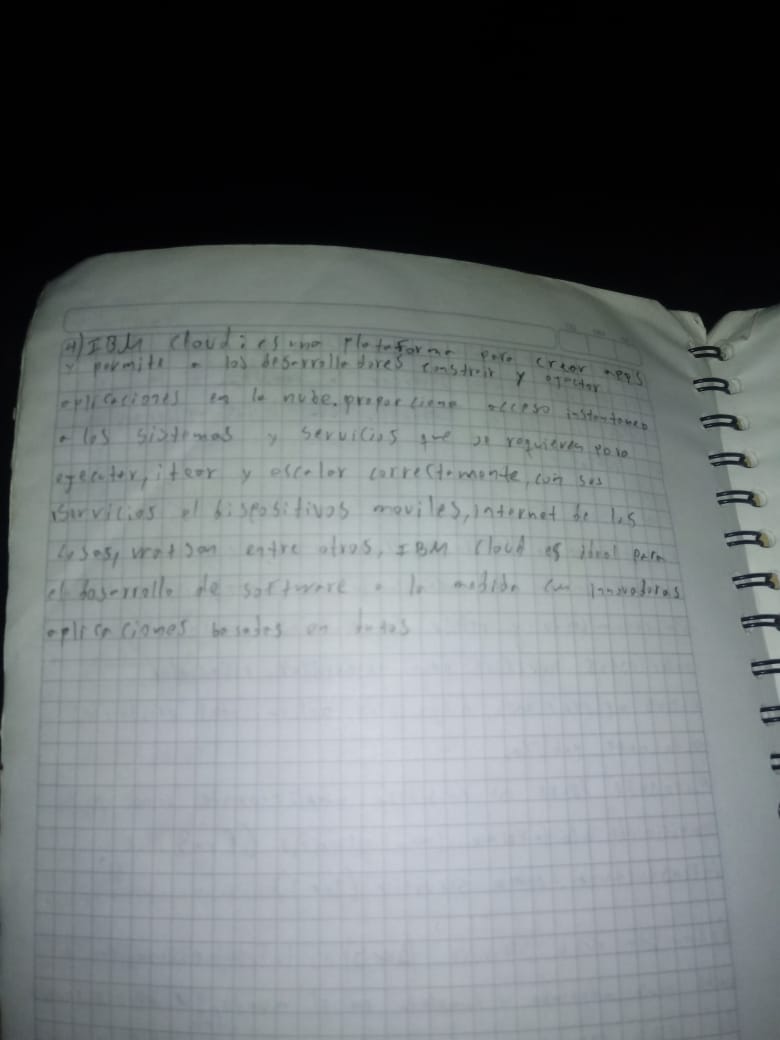 4) IBM Cloud: es una plataforma para crear apps
y permite a los desarrolladores construir y ejecutar
aplicaciones en la nube. proporciona acceso instantaneo
a los sistemas y servicios que se requieren para
ejecutar, itear y escalar correctamente, con sus
servicios el dispositivos moviles, internet de las
cosas, watson entre otros, IBM Cloud es ideal para
el desarrollo de software a la medida con innovadoras
aplicaciones basadas en datos